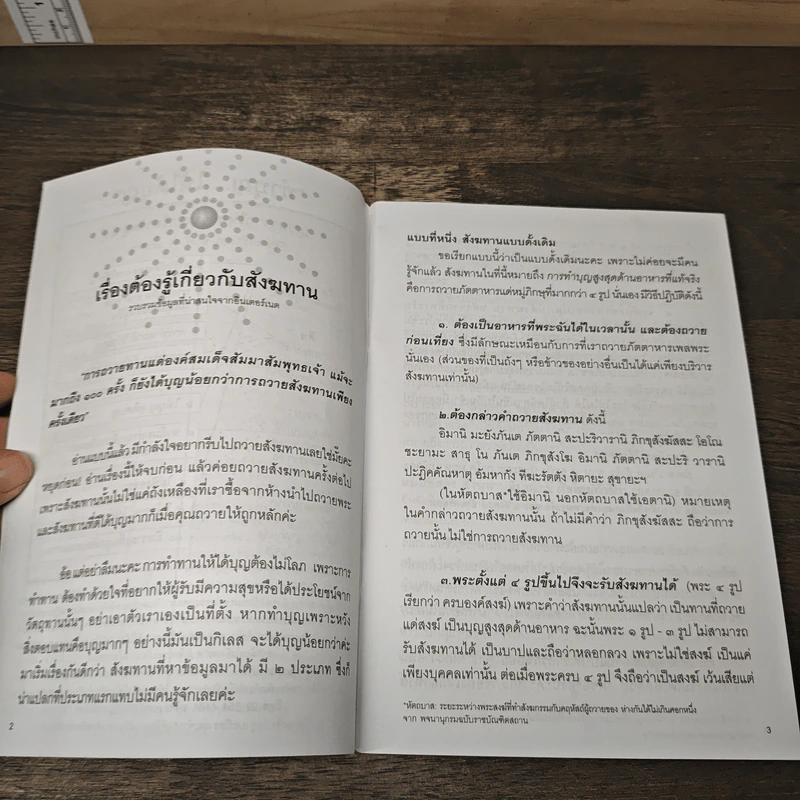 เรื่องต้องรู้เกี่ยวกับสังฆทาน
รวบรวมข้อมูลที่น่าสนใจจากอินเตอร์เนต
"การถวายทานแด่องค์สมเด็จสัมมาสัมพุทธเจ้า แม้จะ
มากถึง ๑๐๐ ครั้ง ก็ยังได้บุญน้อยกว่าการถวายสังฆทานเพียง
ครั้งเดียว"
อ่านแบบนี้แล้ว มีกำลังใจอยากรีบไปถวายสังฆทานเลยใช่มั้ยคะ
หยุดก่อน! อ่านเรื่องนี้ให้จบก่อน แล้วค่อยถวายสังฆทานครั้งต่อไป
เพราะสังฆทานนั้นไม่ใช่แค่ถังเหลืองที่เราซื้อจากห้างนำไปถวายพระ
และสังฆทานที่ดีได้บุญมากก็เมื่อคุณถวายให้ถูกหลักค่ะ
อ้อ แต่อย่าลืมนะคะ การทำทานให้ได้บุญต้องไม่โลภ เพราะการ
ทำทาน ต้องทำด้วยใจที่อยากให้ผู้รับมีความสุขหรือได้ประโยชน์จาก
วัตถุทานนั้นๆ อย่าเอาตัวเราเองเป็นที่ตั้ง หากทำบุญเพราะหวัง
สิ่งตอบแทนคือบุญมากๆ อย่างนี้มันเป็นกิเลส จะได้บุญน้อยกว่าค่ะ
มาเริ่มเรื่องกันดีกว่า สังฆทานที่หาข้อมูลมาได้ มี ๒ ประเภท ซึ่งก็
น่าแปลกที่ประเภทแรกแทบไม่มีคนรู้จักเลยค่ะ
2
แบบที่หนึ่ง สังฆทานแบบดั้งเดิม
ขอเรียกแบบนี้ว่าเป็นแบบดั้งเดิมนะคะ เพราะไม่ค่อยจะมีคน
รู้จักแล้ว สังฆทานในที่นี้หมายถึง การทำบุญสูงสุดด้านอาหารที่แท้จริง
คือการถวายภัตตาหารแด่หมู่ภิกษุที่มากกว่า ๔ รูป นั่นเอง มีวิธีปฏิบัติดังนี้
๑. ต้องเป็นอาหารที่พระฉันได้ในเวลานั้น และต้องถวาย
ก่อนเที่ยง ซึ่งมีลักษณะเหมือนกับการที่เราถวายภัตตาหารเพลพระ
นั่นเอง (ส่วนของที่เป็นถังๆ หรือข้าวของอย่างอื่นเป็นได้แค่เพียงบริวาร
สังฆทานเท่านั้น)
๒.ต้องกล่าวคำถวายสังฆทาน ดังนี้
อิมานิ มะยังภันเต ภัตตานิ สะปะริวารานิ ภิกขุสังฆัสสะ โอโณ
ชะยามะ สาธุ โน ภันเต ภิกขุสังโฆ อิมานิ ภัตตานิ สะปะริ วารานิ
ปะฏิคคัณหาตุ อัมหากัง ทีฆะรัตตัง หิตายะ สุขายะฯ
(ในหัตถบาส*ใช้อิมานิ นอกหัตถบาสใช้เอตานิ) หมายเหตุ
ในคำกล่าวถวายสังฆทานนั้น ถ้าไม่มีคำว่า ภิกขุสังฆัสสะ ถือว่าการ
ถวายนั้น ไม่ใช่การถวายสังฆทาน
๓.พระตั้งแต่ ๔ รูปขึ้นไปจึงจะรับสังฆทานได้ (พระ ๔ รูป
เรียกว่า ครบองค์สงฆ์) เพราะคำว่าสังฆทานนั้นแปลว่า เป็นทานที่ถวาย
แด่สงฆ์ เป็นบุญสูงสุดด้านอาหาร ฉะนั้นพระ ๑ รูป - ๓ รูป ไม่สามารถ
รับสังฆทานได้ เป็นบาปและถือว่าหลอกลวง เพราะไม่ใช่สงฆ์ เป็นแค่
เพียงบุคคลเท่านั้น ต่อเมื่อพระครบ ๔ รูป จึงถือว่าเป็นสงฆ์ เว้นเสียแต่
*หัตถบาส: ระยะระหว่างพระสงฆ์ที่ทำสังฆกรรมกับคฤหัสถ์ผู้ถวายของ ห่างกันได้ไม่เกินศอกหนึ่ง
จาก พจนานุกรมฉบับราชบัณฑิตสถาน
3